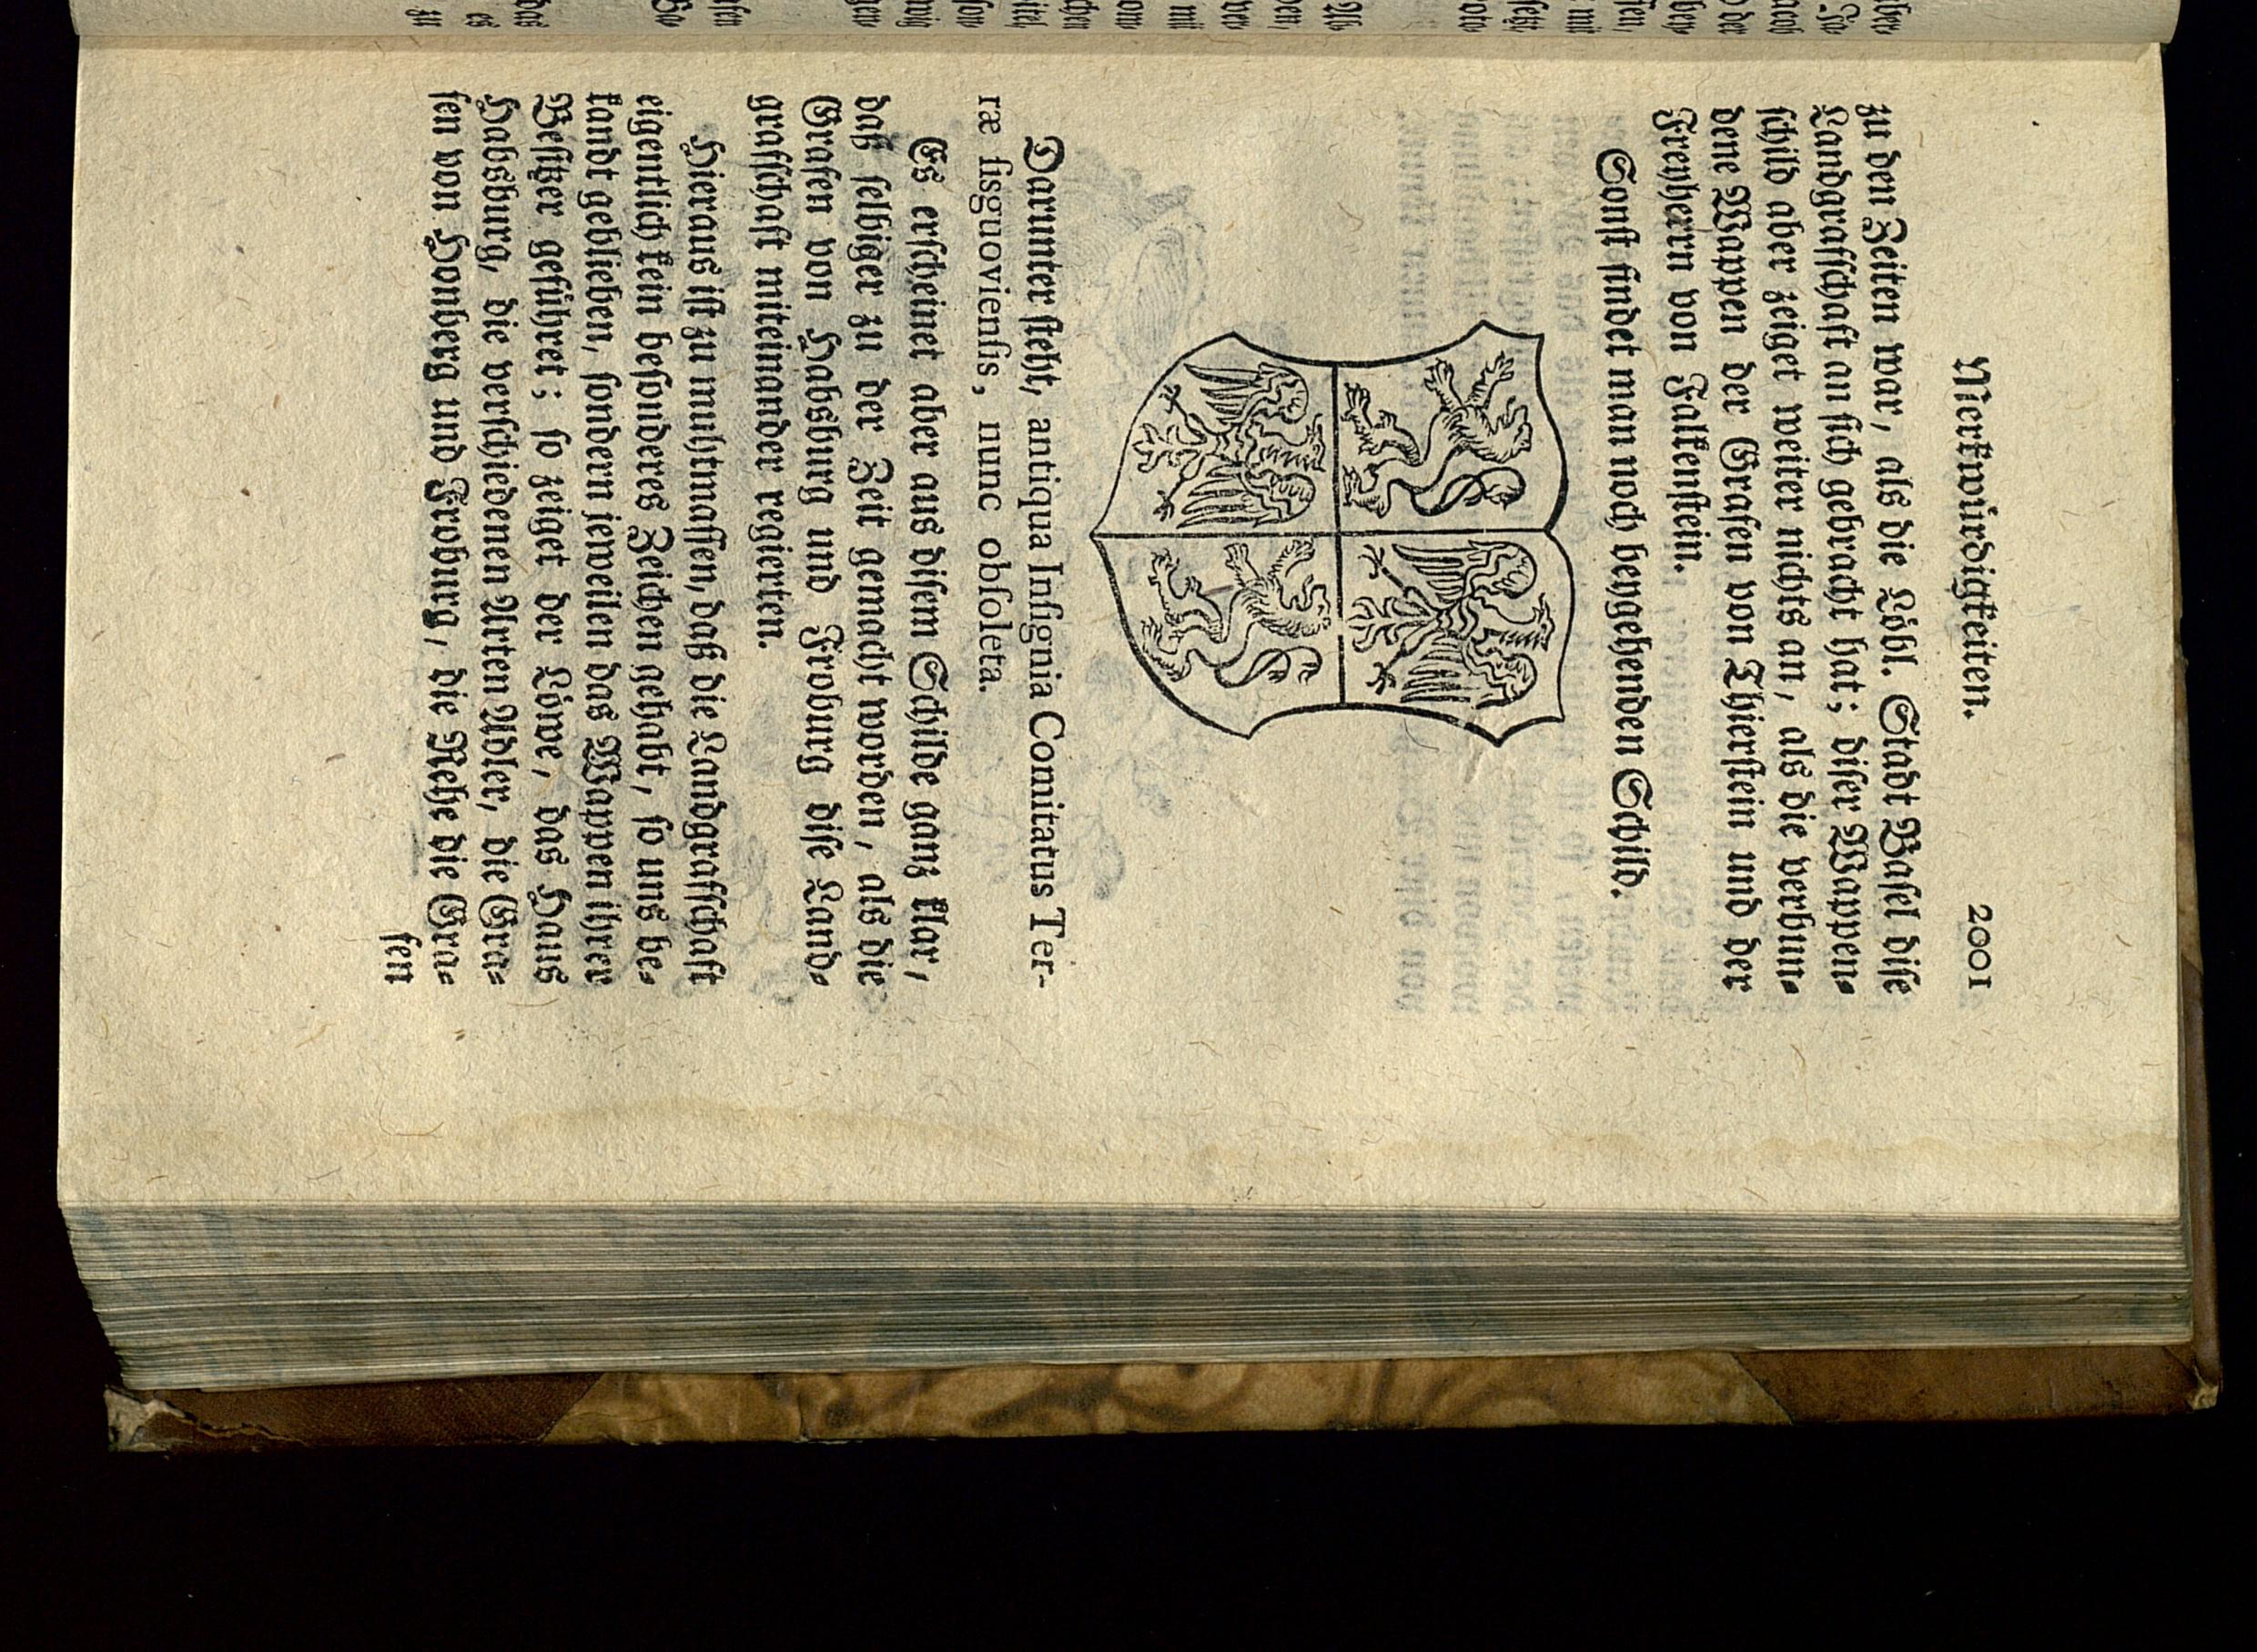 Merkwürdigkeiten. 2001
zu den Zeiten war, als die Löbl. Stadt Basel dise
Landgrafschaft an sich gebracht hat; diser Wappen-
schild aber zeiget weiter nichts an, als die verbun-
dene Wappen der Grafen von Thierstein und der
Freyherrn von Falkenstein.
Sonst findet man noch beygehenden Schild.
Darunter steht, antiqua Insignia Comitatus Ter-
ræ sisguoviensis, nunc obsoleta.
Es erscheinet aber aus disem Schilde ganz klar,
daß selbiger zu der Zeit gemacht worden, als die
Grafen von Habsburg und Froburg dise Land-
grafschaft miteinander regierten.
Hieraus ist zu muhtmassen, daß die Landgrafschaft
eigentlich kein besonderes Zeichen gehabt, so uns be-
kandt geblieben, sondern jeweilen das Wappen ihrer
Besitzer geführet; so zeiget der Löwe, das Haus
Habsburg, die verschiedenen Arten Adler, die Gra-
fen von Honberg und Froburg, die Rehe die Gra-
fen